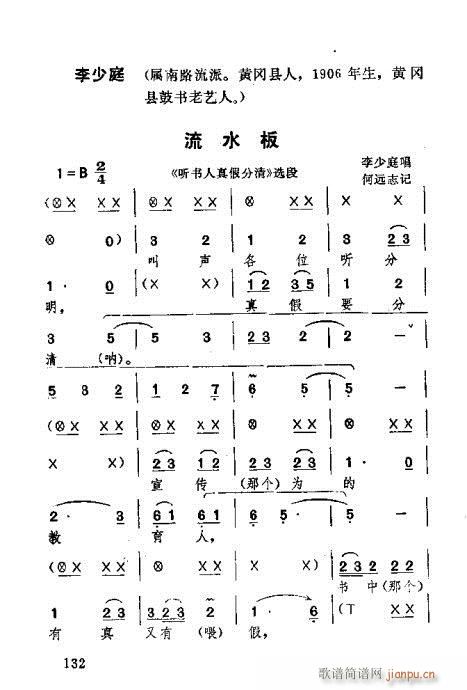 李少庭 (属南路流派。黄冈县人，1906年生，黄冈
县鼓书老艺人。)
流水板
1=B 2/4 《听书人真假分清》选段 李少庭唱
何远志记
(⊗ X X | ⊗ X X | ⊗ X X | X X
⊗ 0) | 3 2 | 1 2 | 3 2 3
叫 声 各 位 听 分
1· 0 | (X X) | 1 2 3 5 | 1 2
明， 真 假 要 分
3 5 | 5 3 | 2 3 2 | 5 -
清 (呐)。
5 3 2 | 1 2 7 | 6 5 | 5 -
(⊗ X X | ⊗ X X | ⊗ X X | ⊗ X X
X X) | 2 3 1 2 | 2 3 2 3 | 1· 0
宣 传 (那个)为 的
2· 3 | 6 1 6 1 | 6 5 | 5 -
教 育 人，
(⊗ X X | ⊗ X X | X X) | 2 3 2 2 2
书 中(那个)
1 2 3 | 3 2 3 2 | 1· 6 | (T X X
有 真 又 有 (喂) 假，
132
歌谱简谱网 jianpu.cn